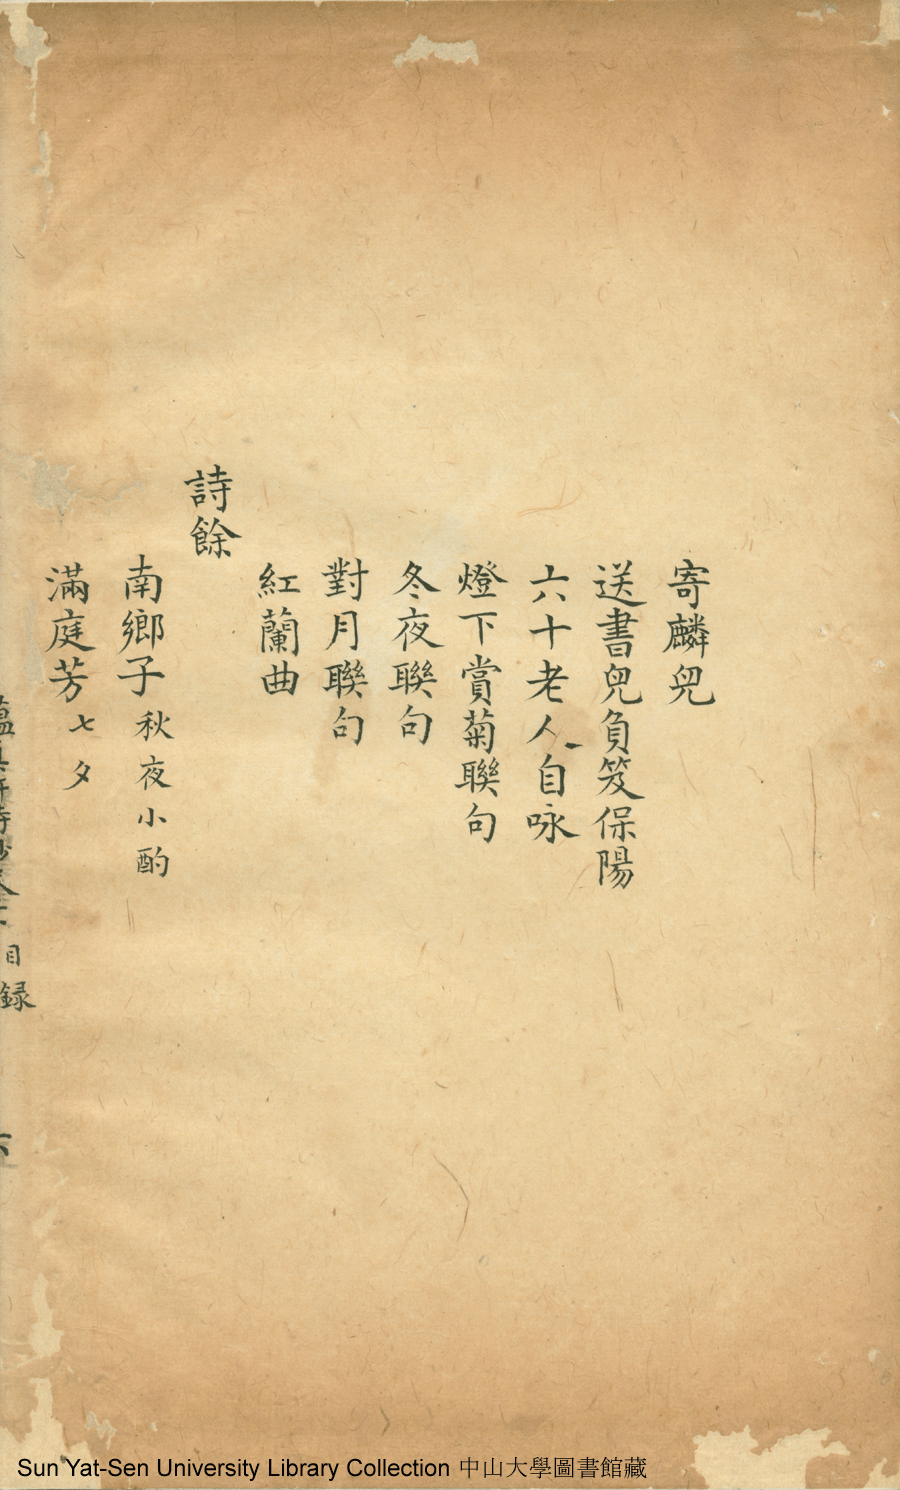 寄麟兒
送書兒負笈保陽
六十老人自咏
燈下賞菊聯句
冬夜聯句
對月聯句
紅蘭曲
詩餘
南鄉子 秋夜小酌
滿庭芳 七夕
目録
六
Sun Yat-Sen University Library Collection 中山大學圖書館藏